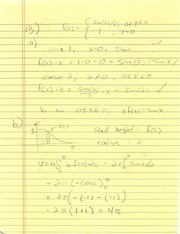 13) f(x) = { sin(x)/x, 0<x≤π
1, x=0
a)
case 1, x=0, Then
f(x)·x = 1·0 = 0 = sin 0 = sin x ✓
case 2, x≠0, 0<x≤π
f(x)·x = sin(x)/x · x = sin(x) ✓
So on 0≤x≤π, x f(x) = sin x
b)
Shell height: f(x)
radius: x
V = 2π∫₀^π x f(x) dx = 2π∫₀^π sin x dx
= 2π (-cos x)₀^π
= 2π (-(-1) - (-1))
= 2π (1+1) = 4π